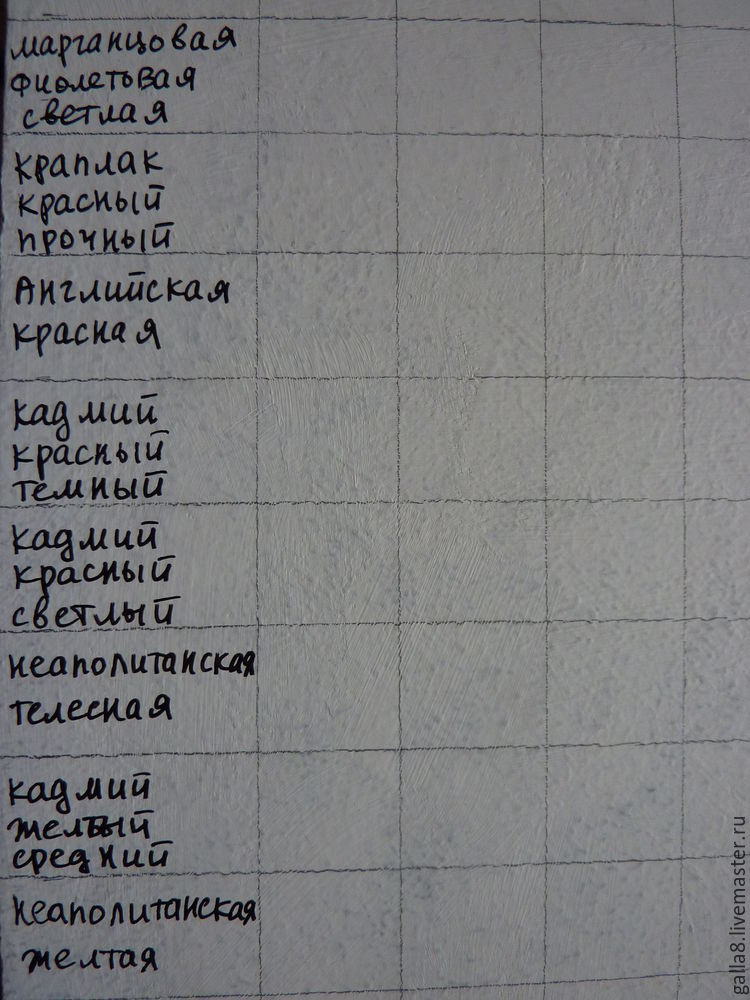 марганцовая
фиолетовая
светлая
краплак
красный
прочный
Английская
красная
кадмий
красный
темный
кадмий
красный
светлый
неаполитанская
телесная
кадмий
желтый
средний
неаполитанская
желтая
galla8.livemaster.ru